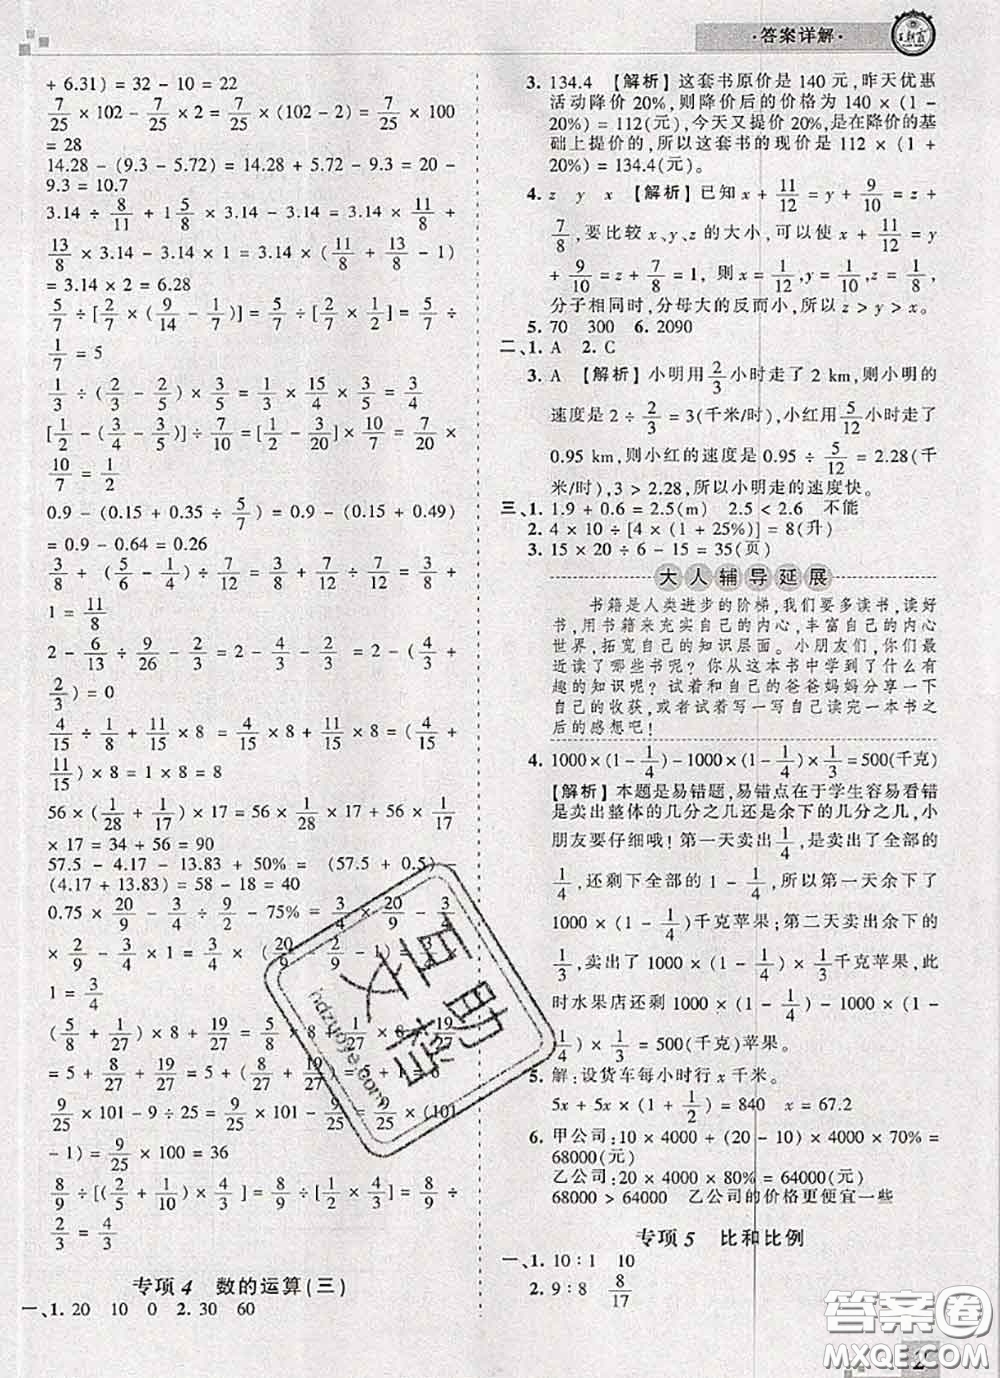 ·答案详解·
王朝霞
+ 6.31) = 32 - 10 = 22
7/25 × 102 - 7/25 × 2 = 7/25 × (102 - 2) = 7/25 × 100
= 28
14.28 - (9.3 - 5.72) = 14.28 + 5.72 - 9.3 = 20 -
9.3 = 10.7
3.14 ÷ 8/11 + 1 5/8 × 3.14 - 3.14 = 3.14 × 11/8 +
13/8 × 3.14 - 3.14 × 1 = 3.14 × (11/8 + 13/8 - 1)
= 3.14 × 2 = 6.28
5/7 ÷ [2/7 × (9/14 - 1/7)] = 5/7 ÷ [2/7 × 1/2] = 5/7 ÷
1/7 = 5
1/3 ÷ (2/3 - 2/5) × 3/5 = 1/3 × 15/4 × 3/5 = 3/4
[1/2 - (3/4 - 3/5)] ÷ 7/10 = [1/2 - 3/20] × 10/7 = 7/20 ×
10/7 = 1/2
0.9 - (0.15 + 0.35 ÷ 5/7) = 0.9 - (0.15 + 0.49)
= 0.9 - 0.64 = 0.26
3/8 + (5/6 - 1/4) ÷ 7/12 = 3/8 + 7/12 ÷ 7/12 = 3/8 +
1 = 11/8
2 - 6/13 ÷ 9/26 - 2/3 = 2 - 4/3 - 2/3 = 2 - (4/3 +
2/3) = 0
4/15 ÷ 1/8 + 11/15 × 8 = 4/15 × 8 + 11/15 × 8 = (4/15 +
11/15) × 8 = 1 × 8 = 8
56 × (2/17 + 1/56) × 17 = 56 × 2/17 × 17 + 56 × 1/56
× 17 = 34 + 56 = 90
57.5 - 4.17 - 13.83 + 50% = (57.5 + 0.5) -
(4.17 + 13.83) = 58 - 18 = 40
0.75 × 20/9 - 3/4 ÷ 9/2 - 75% = 3/4 × 20/9 - 3/4
× 2/9 - 3/4 × 1 = 3/4 × (20/9 - 2/9 - 1) = 3/4 ×
1 = 3/4
(5/8 + 1/27) × 8 + 19/27 = 5/8 × 8 + 1/27 × 8 + 19/27
= 5 + 8/27 + 19/27 = 5 + (8/27 + 19/27) = 5 + 1 = 6
9/25 × 101 - 9 ÷ 25 = 9/25 × 101 - 9/25 = 9/25 × (101
- 1) = 9/25 × 100 = 36
8/9 ÷ [(2/5 + 1/10) × 4/3] = 8/9 ÷ [1/2 × 4/3] = 8/9 ÷
2/3 = 4/3
专项 4 数的运算(三)
一、1. 20 10 0 2. 30 60
3. 134.4 【解析】这套书原价是 140 元,昨天优惠
活动降价 20%,则降价后的价格为 140 × (1 -
20%) = 112(元),今天又提价 20%,是在降价的基
础上提价的,所以这套书的现价是 112 × (1 +
20%) = 134.4(元)。
4. z y x 【解析】已知 x + 11/12 = y + 9/10 = z +
7/8,要比较 x、y、z 的大小,可以使 x + 11/12 = y
+ 9/10 = z + 7/8 = 1, 则 x = 1/12, y = 1/10, z = 1/8。
分子相同时,分母大的反而小,所以 z > y > x。
5. 70 300 6. 2090
二、1. A 2. C
3. A 【解析】小明用 2/3 小时走了 2 km,则小明的
速度是 2 ÷ 2/3 = 3(千米/时),小红用 5/12 小时走了
0.95 km,则小红的速度是 0.95 ÷ 5/12 = 2.28(千
米/时),3 > 2.28,所以小明走的速度快。
三、1. 1.9 + 0.6 = 2.5(m) 2.5 < 2.6 不能
2. 4 × 10 ÷ [4 × (1 + 25%)] = 8(升)
3. 15 × 20 ÷ 6 - 15 = 35(页)
大人辅导延展
书籍是人类进步的阶梯,我们要多读书,读好
书,用书籍来充实自己的内心,丰富自己的内心
世界,拓宽自己的知识层面。小朋友们,你们最
近读了哪些书呢?你从这本书中学到了什么有
趣的知识呢?试着和自己的爸爸妈妈分享一下
自己的收获,或者试着写一写自己读完一本书之
后的感想吧!
4. 1000 × (1 - 1/4) - 1000 × (1 - 1/4) × 1/3 = 500(千克)
【解析】本题是易错题,易错点在于学生容易看错
是卖出整体的几分之几还是余下的几分之几,小
朋友要仔细哦!第一天卖出 1/4,是卖出了全部的
1/4,还剩下全部的 1 - 1/4,所以第一天余下了
1000 × (1 - 1/4)千克苹果;第二天卖出余下的
1/3,卖出了 1000 × (1 - 1/4) × 1/3 千克苹果,此
时水果店还剩 1000 × (1 - 1/4) - 1000 × (1 -
1/4) × 1/3 = 500(千克)苹果。
5. 解:设货车每小时行 x 千米。
5x + 5x × (1 + 1/2) = 840 x = 67.2
6. 甲公司:10 × 4000 + (20 - 10) × 4000 × 70% =
68000(元)
乙公司:20 × 4000 × 80% = 64000(元)
68000 > 64000 乙公司的价格更便宜一些
专项 5 比和比例
一、1. 10 : 1 10
2. 9 : 8 8/17
2
互助文档
hdzuoye.com
答案圈
MXQE.COM